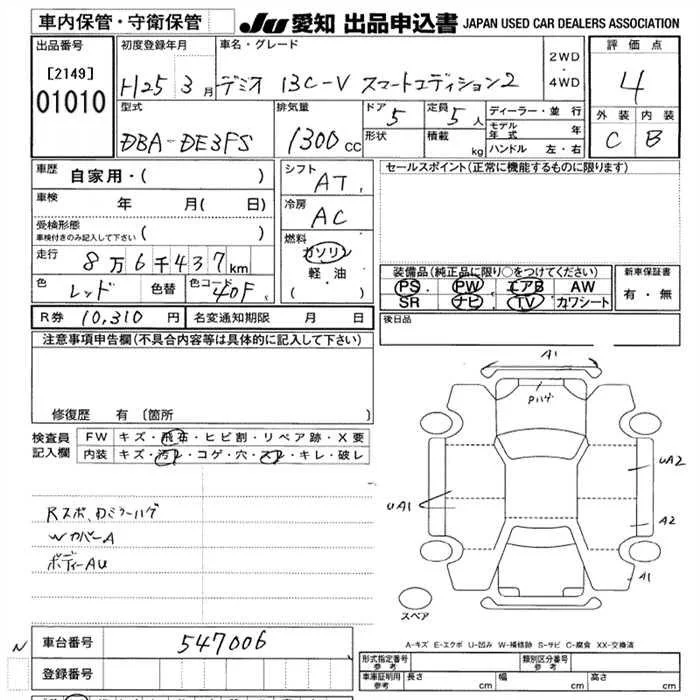 車内保管・守衛保管 JU 愛知 出品申込書 JAPAN USED CAR DEALERS ASSOCIATION
出品番号 初度登録年月 車名・グレード 2WD・4WD 評価点
[2149] 01010 H25 3月 デミオ 13C-V スマートエディション2 4
型式 排気量 ドア 定員 ディーラー・並行 外装 内装
DBA-DE3FS 1300cc 5 5人 モデル年式 年 C B
形状 積載 kg ハンドル 左・右
車歴 自家用・( ) シフト AT セールスポイント(正常に機能するものに限ります)
車検 年 月( 日) 冷房 AC
受検形態 車検付きのみ記入して下さい ( ) 燃料 ガソリン 軽油 ( )
走行 8万6千437km
装備品(純正品に限り○をつけてください) 新車保証書
PS PW エアB AW 有・無
SR ナビ TV カワシート
色 レッド 色替 色コード 40F
R券 10,310円 名変通知期限 月 日 後日品
注意事項申告欄(不具合内容等は具体的に記入して下さい)
修復歴 有(箇所
検査員記入欄 FW キズ・飛石・ヒビ割・リペア跡・X要
内装 キズ・汚レ・コゲ・穴・スレ・キレ・破レ
Rスポ、ロミラーハゲ
WカバーA
ボディーAU
A1
Pハゲ
UA2
UA1
A2
A1
スペア
A-キズ E-エクボ U-凹み W-補修跡 S-サビ C-腐食 XX-交換済
N 車台番号 547006
登録番号
形式指定番号 参考 類別区分番号 参考
車庫証明用 参考 長さ cm 幅 cm 高さ cm